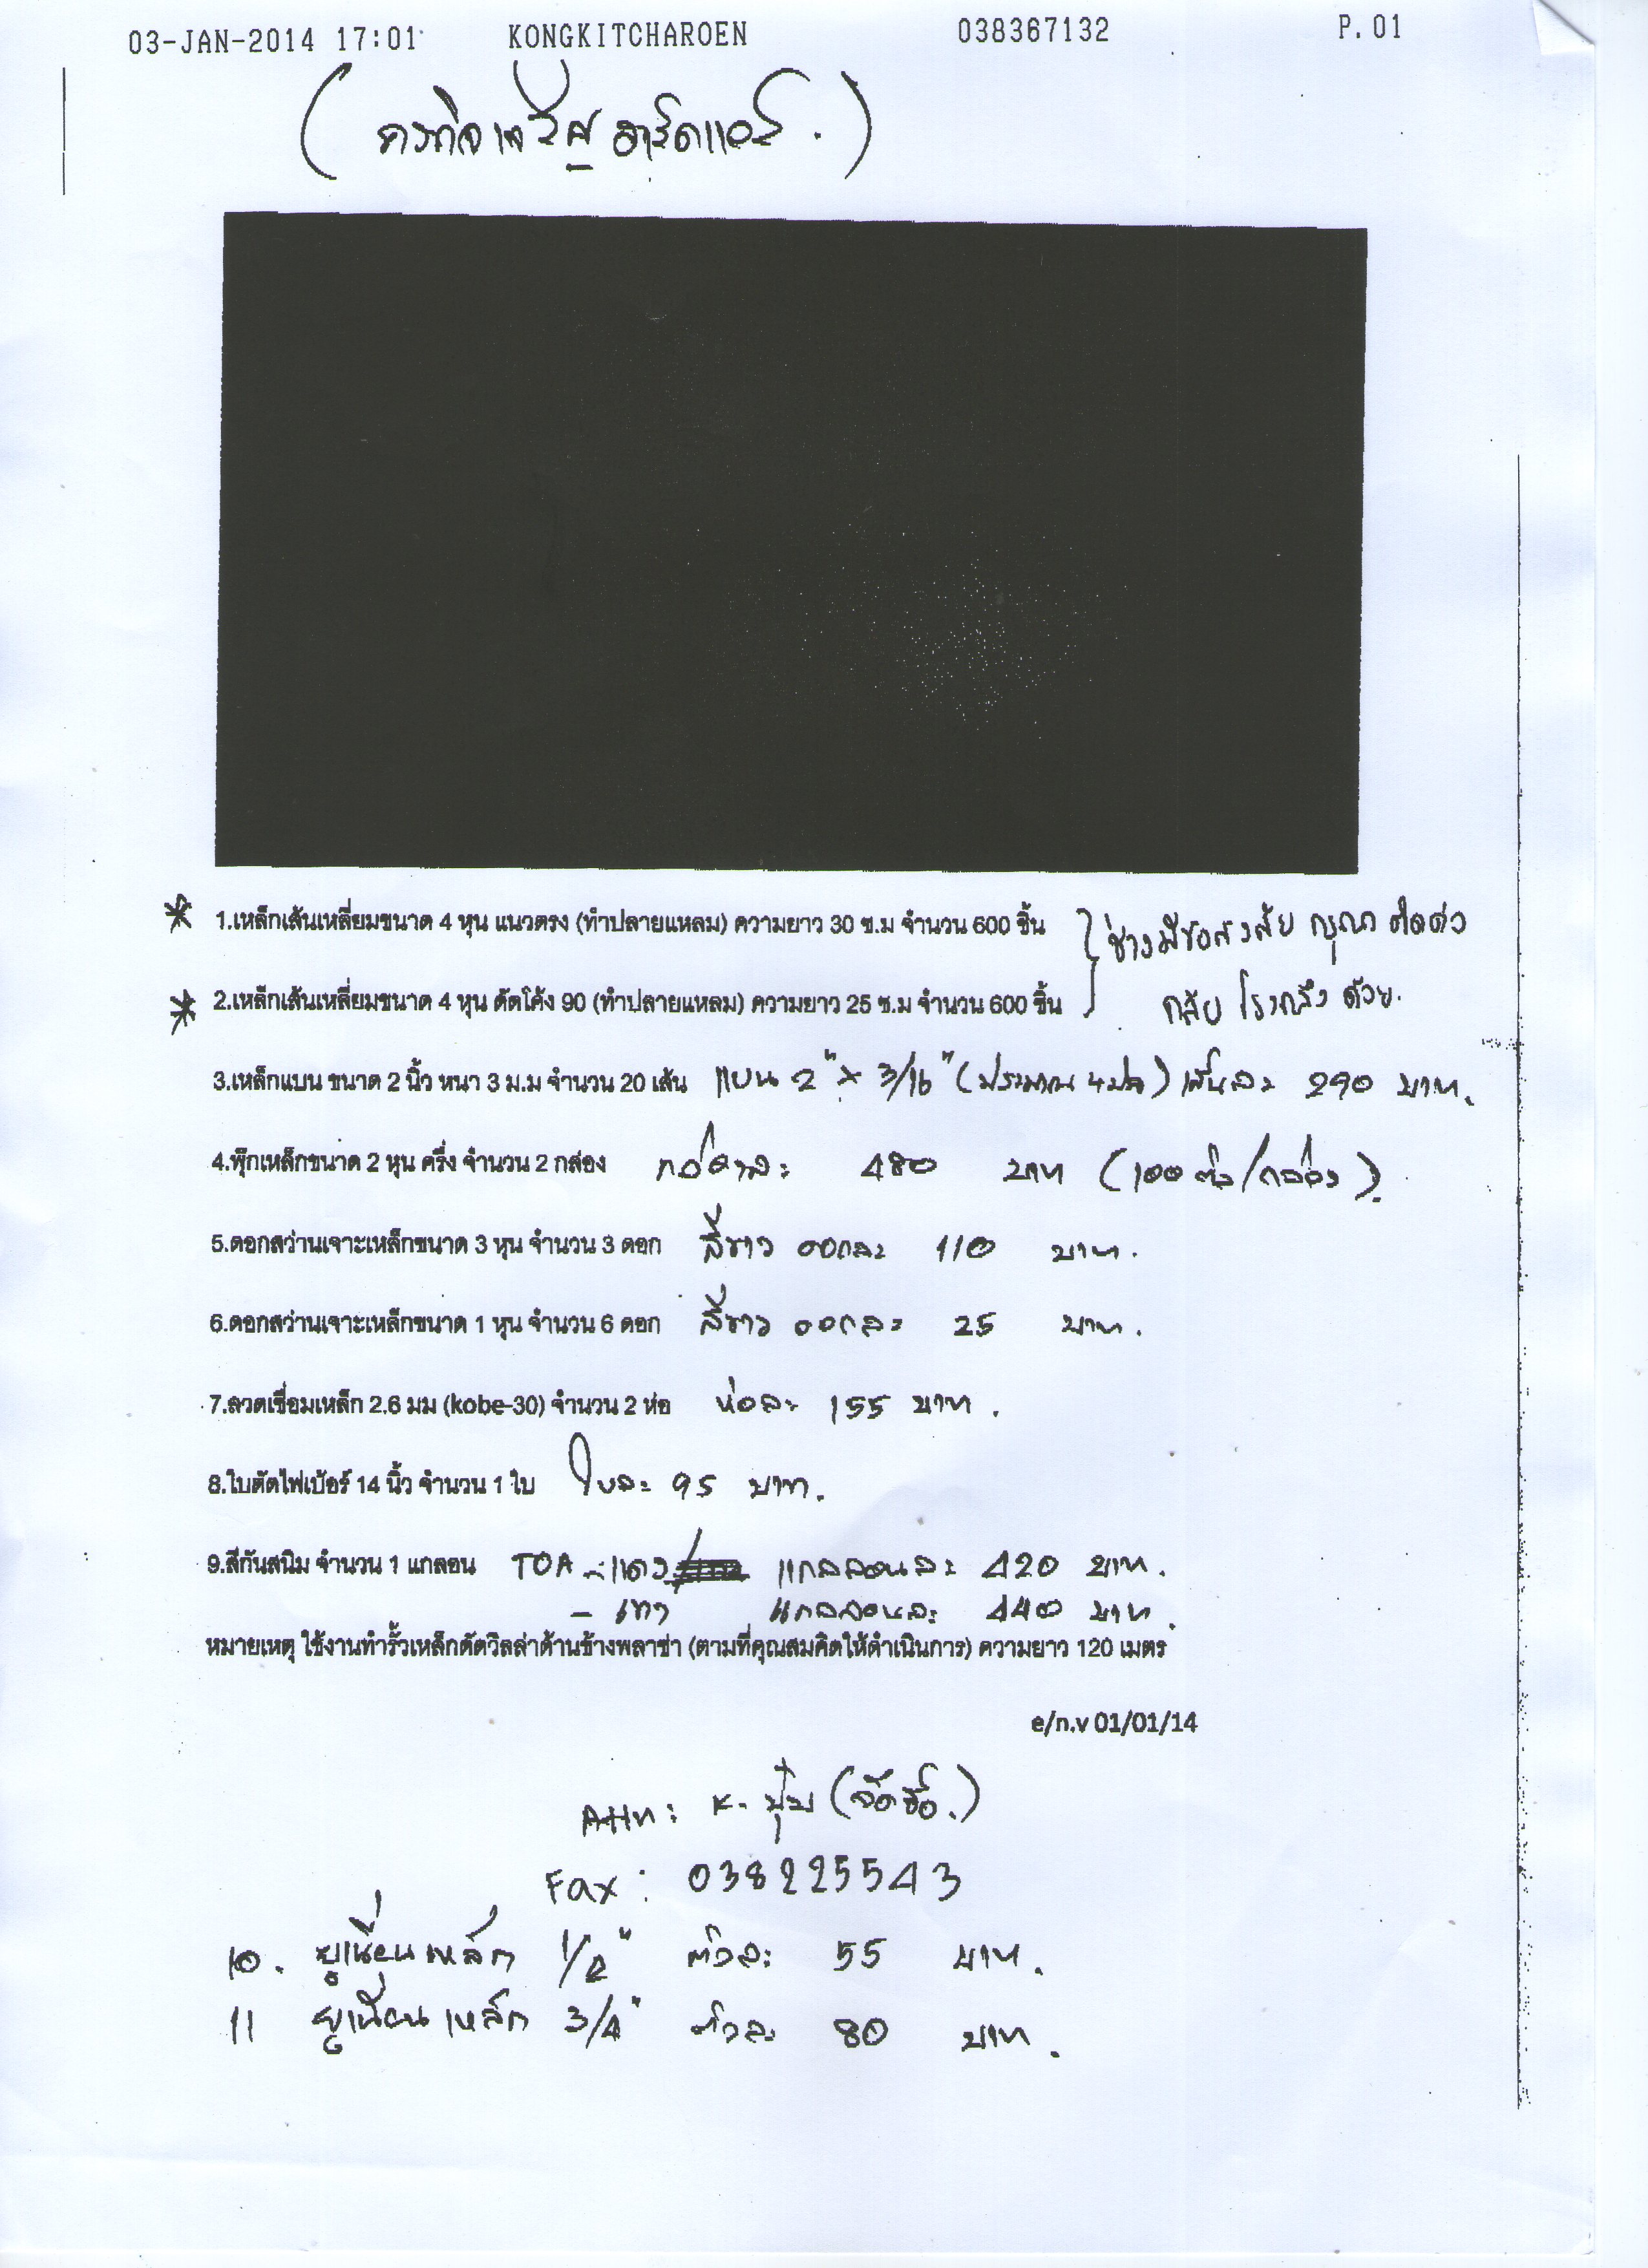 03-JAN-2014 17:01 KONGKITCHAROEN 038367132 P.01
(คงกิจเจริญ ฮาร์ดแวร์.)
* 1.เหล็กเส้นเหลี่ยมขนาด 4 หุน แนวตรง (ทำปลายแหลม) ความยาว 30 ซ.ม จำนวน 600 ชิ้น
ช่างมีข้อสงสัย กรุณา ติดต่อ
* 2.เหล็กเส้นเหลี่ยมขนาด 4 หุน ดัดโค้ง 90 (ทำปลายแหลม) ความยาว 25 ซ.ม จำนวน 600 ชิ้น
กลับ โรงกลึง ด้วย.
3.เหล็กแบน ขนาด 2 นิ้ว หนา 3 ม.ม จำนวน 20 เส้น แบน 2" x 3/16" (ประมาณ 4 มิล) เส้นละ 290 บาท.
4.พุ๊กเหล็กขนาด 2 หุน ครึ่ง จำนวน 2 กล่อง กล่องละ 480 บาท (100 ตัว/กล่อง).
5.ดอกสว่านเจาะเหล็กขนาด 3 หุน จำนวน 3 ดอก สีขาว ดอกละ 110 บาท.
6.ดอกสว่านเจาะเหล็กขนาด 1 หุน จำนวน 6 ดอก สีขาว ดอกละ 25 บาท.
7.ลวดเชื่อมเหล็ก 2.6 มม (kobe-30) จำนวน 2 ห่อ ห่อละ 155 บาท.
8.ใบตัดไฟเบ้อร์ 14 นิ้ว จำนวน 1 ใบ ใบละ 95 บาท.
9.สีกันสนิม จำนวน 1 แกลอน TOA - แดง แกลลอนละ 420 บาท.
- เทา แกลลอนละ 440 บาท.
หมายเหตุ ใช้งานทำรั้วเหล็กดัดวิลล่าด้านข้างพลาซ่า (ตามที่คุณสมคิดให้ดำเนินการ) ความยาว 120 เมตร
e/n.v 01/01/14
Attn: K. ปุ้ม (จัดซื้อ.)
Fax: 038225543
10. ยูเนี่ยนเหล็ก 1/2" ตัวละ 55 บาท.
11 ยูเนี่ยนเหล็ก 3/4" ตัวละ 80 บาท.